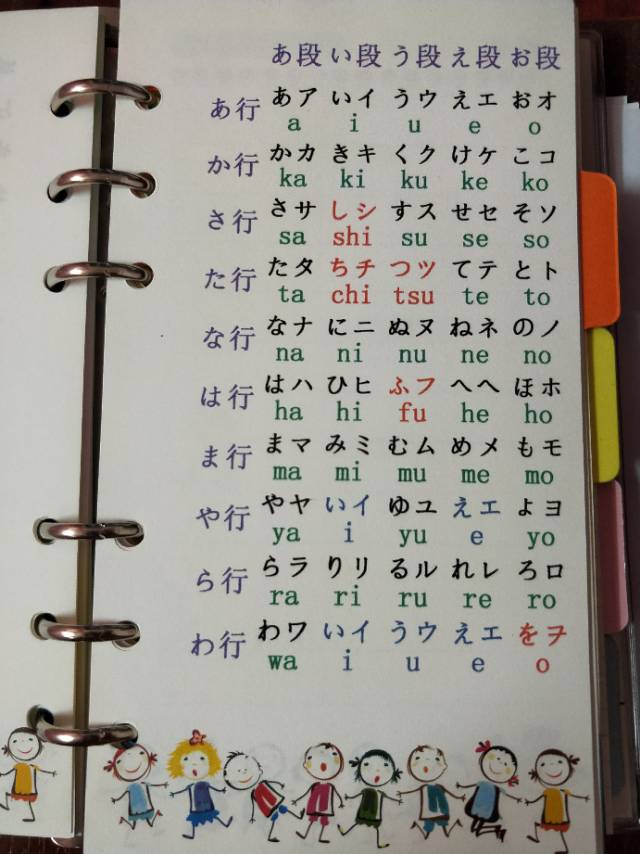 あ段 い段 う段 え段 お段
あ行 あア いイ うウ えエ おオ
a i u e o
か行 かカ きキ くク けケ こコ
ka ki ku ke ko
さ行 さサ しシ すス せセ そソ
sa shi su se so
た行 たタ ちチ つツ てテ とト
ta chi tsu te to
な行 なナ にニ ぬヌ ねネ のノ
na ni nu ne no
は行 はハ ひヒ ふフ へヘ ほホ
ha hi fu he ho
ま行 まマ みミ むム めメ もモ
ma mi mu me mo
や行 やヤ いイ ゆユ えエ よヨ
ya i yu e yo
ら行 らラ りリ るル れレ ろロ
ra ri ru re ro
わ行 わワ いイ うウ えエ をヲ
wa i u e o